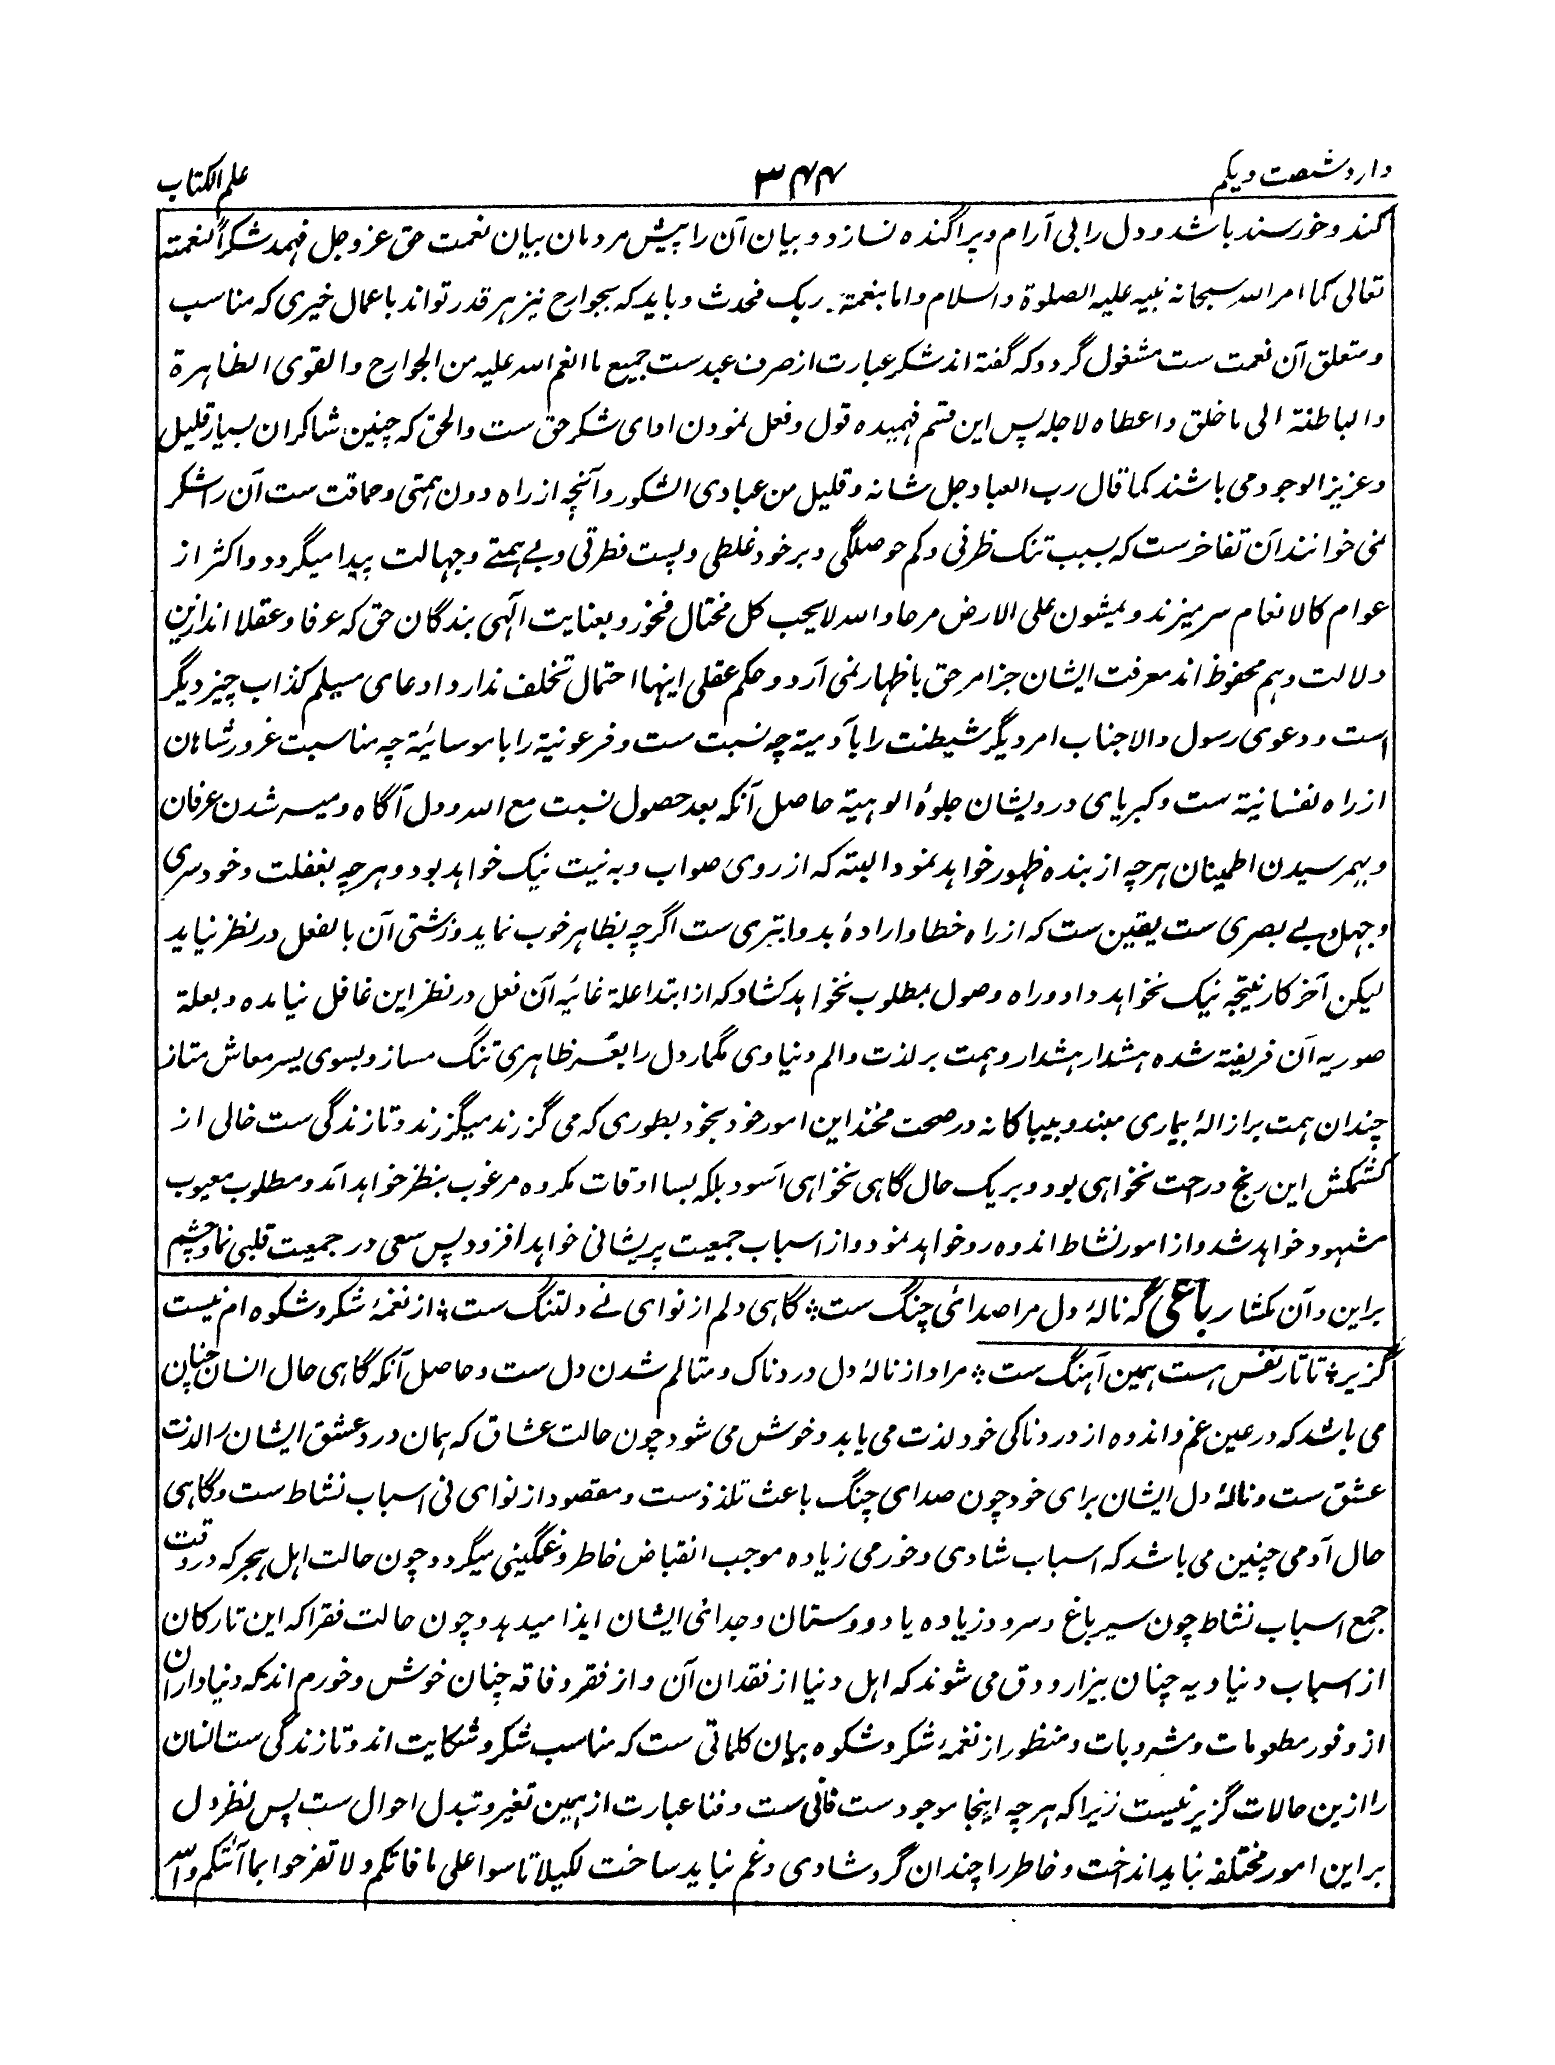 وارد شصت ویکم ۳۴۴ علم الکتاب
کند و خورسند باشد و دل را بی آرام و پراگنده نسازد و بیان آن را پیش مردمان بیان نعمت حق عزوجل فهمد شکراً لنعمته
تعالی کما امر الله سبحانه نبیه علیه الصلوة والسلام واما بنعمة ربک فحدث و باید که بجوارح نیز هر قدر تواند باعمال خیری که مناسب
ومتعلق آن نعمت ست مشغول گردد که گفته اند شکر عبارت از صرف عبد ست جمیع ما انعم الله علیه من الجوارح والقوی الظاهرة
والباطنة الی ما خلق واعطاه لاجله پس این قسم فهمیده قول و فعل نمودن ادای شکر حق ست والحق که چنین شاکران بسیار قلیل
وعزیز الوجود می باشند کما قال رب العباد جل شانه وقلیل من عبادی الشکور و آنچه از راه دون همتی و حماقت ست آن را شکر
نمی خوانند آن تفاخر ست که بسبب تنک ظرفی و کم حوصلگی و بر خود غلطی و پست فطرتی و بے همتے و جهالت پیدا میگردد و اکثر از
عوام کالانعام سر میزند و یمشون علی الارض مرحا والله لا یحب کل مختال فخور و بعنایت الٓهی بندگان حق که عرفا و عقلا اند ازین
دلالت وهم محفوظ اند معرفت ایشان جز امر حق باظهار نمی آرد و حکم عقلی اینها احتمال تخلف ندارد ادعای مسیلم کذاب چیز دیگر
است و دعوی رسول والا جناب امر دیگر شیطنت را بآدمیة چه نسبت ست و فرعونیة را با موسائیة چه مناسبت غرور شاهان
از راه نفسانیة ست و کبریای درویشان جلوهٔ الوهیة حاصل آنکه بعد حصول نسبت مع الله و دل آگاه و میسر شدن عرفان
و بهم رسیدن اطمینان هر چه از بنده ظهور خواهد نمود البته که از روی صواب و به نیت نیک خواهد بود و هر چه بغفلت و خودسری
و جهل و بے بصری ست یقین ست که از راه خطا و ارادهٔ بد و ابتری ست اگرچه بظاهر خوب نماید و زشتی آن بالفعل در نظر نیاید
لیکن آخر کار نتیجه نیک نخواهد داد و راه وصول بمطلوب نخواهد کشاد که از ابتدا علة غائیه آن فعل در نظر این غافل نیامده و بعلة
صوریه آن فریفته شده هشدار هشدار و همت بر لذت و الم دنیاوی مگمار دل را بعسر ظاهری تنگ مساز و بسوی یسر معاش متاز
چندان همت بر ازالهٔ بیماری مبند و بیباکانه در صحت مخند این امور خود بخود بطوری که می گزرند میگزرند و تا زندگی ست خالی از
کشمکش این رنج و راحت نخواهی بود و بر یک حال گاهی نخواهی آسود بلکه بسا اوقات مکروه مرغوب بنظر خواهد آمد و مطلوب معیوب
مشهود خواهد شد و از امور نشاط اندوه رو خواهد نمود و از اسباب جمعیت پریشانی خواهد افزود پس سعی در جمعیت قلبی نما و چشم
بر این و آن مکشا رباعی گه نالهٔ دل مرا صدائی چنگ ست ؞ گاهی دلم از نوای نے دلتنگ ست ؞ از نغمهٔ شکر و شکوه ام نیست
گزیر ؞ تا تار نفس هست همین آهنگ ست ؞ مراد از نالهٔ دل دردناک و متالم شدن دل ست و حاصل آنکه گاهی حال انسان چنان
می باشد که در عین غم و اندوه از دردناکی خود لذت می یابد و خوش می شود چون حالت عشاق که همان درد عشق ایشان را لذت
عشق ست و نالهٔ دل ایشان برای خود چون صدای چنگ باعث تلذذ ست و مقصود از نوای نی اسباب نشاط ست و گاهی
حال آدمی چنین می باشد که اسباب شادی و خورمی زیاده موجب انقباض خاطر و غمگینی میگردد چون حالت اهل هجر که در وقت
جمع اسباب نشاط چون سیر باغ و سرود زیاده یاد دوستان و جدائی ایشان ایذا میدهد و چون حالت فقرا که این تارکان
از اسباب دنیاویه چنان بیزار و دق می شوند که اهل دنیا از فقدان آن و از فقر و فاقه چنان خوش و خورم اند که دنیاداران
از وفور مطعومات و مشروبات و منظور از نغمهٔ شکر و شکوه بیان کلماتی ست که مناسب شکر و شکایت اند و تا زندگی ست انسان
را ازین حالات گزیر نیست زیرا که هر چه اینجا موجود ست فانی ست و فنا عبارت از همین تغیر و تبدل احوال ست پس نظر دل
بر این امور مختلفه نباید انداخت و خاطر را چندان گرو شادی و غم نباید ساخت لکیلا تاسوا علی ما فاتکم ولا تفرحوا بما آتٰکم والله